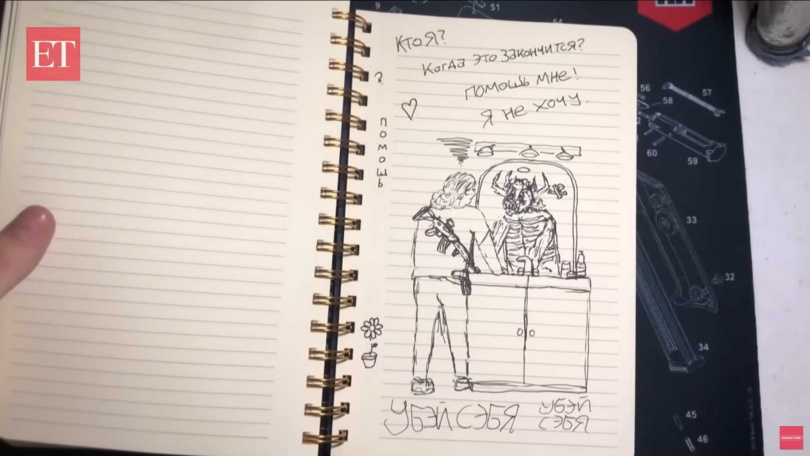 ET
Кто я?
Когда это закончится?
помошь мне!
я не хочу.
?
помошь
УБЭЙ СЭБЯ
УБЭЙ
СЭБЯ
51
56
57
58
60
59
33
32
34
45
46